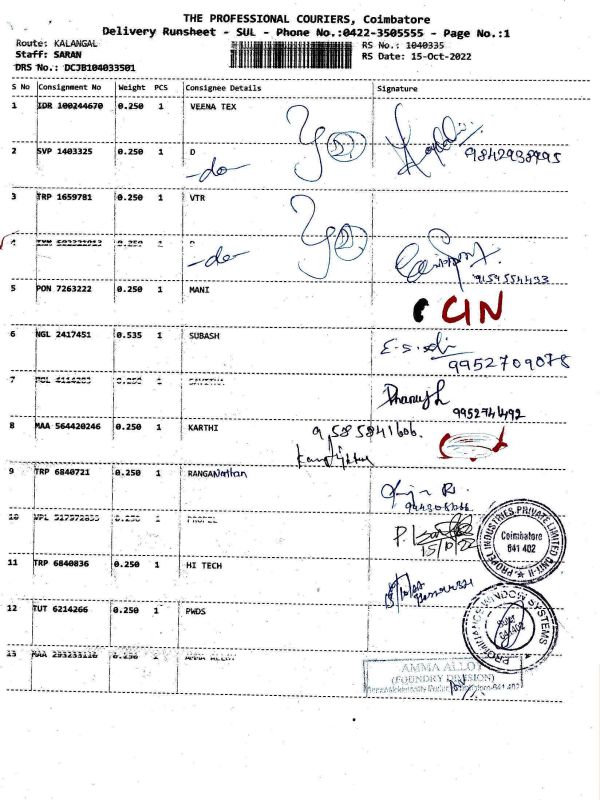 THE PROFESSIONAL COURIERS, Coimbatore
Delivery Runsheet - SUL - Phone No.:0422-3505555 - Page No.:1
Route: KALANGAL
RS No.: 1040335
Staff: SARAN
RS Date: 15-Oct-2022
DRS No.: DCJB104033501
S No Consignment No Weight PCS Consignee Details Signature
1 IDR 100244670 0.250 1 VEENA TEX
2 SVP 1403325 0.250 1 D
-do-
3 TRP 1659781 0.250 1 VTR
4 0.250 1 D
-do-
9159554433
5 PON 7263222 0.250 1 MANI
CIN
6 NGL 2417451 0.535 1 SUBASH
9952709078
7 0.250 1 SAVITHA
9952741492
8 MAA 564420246 0.250 1 KARTHI 9585841606.
9 TRP 6840721 0.250 1 RANGANathan
10 0.250 1 PROPEL
15/10/22
PROPEL INDUSTRIES PRIVATE LIMITED UNIT-II
Coimbatore
641 402
11 TRP 6840836 0.250 1 HI TECH
12 TUT 6214266 0.250 1 PWDS
WINDOW SYSTEMS
641402
13 MAA 293233116 0.250 1 AMMA ALLOY
AMMA ALLOY
(FOUNDRY DIVISION)